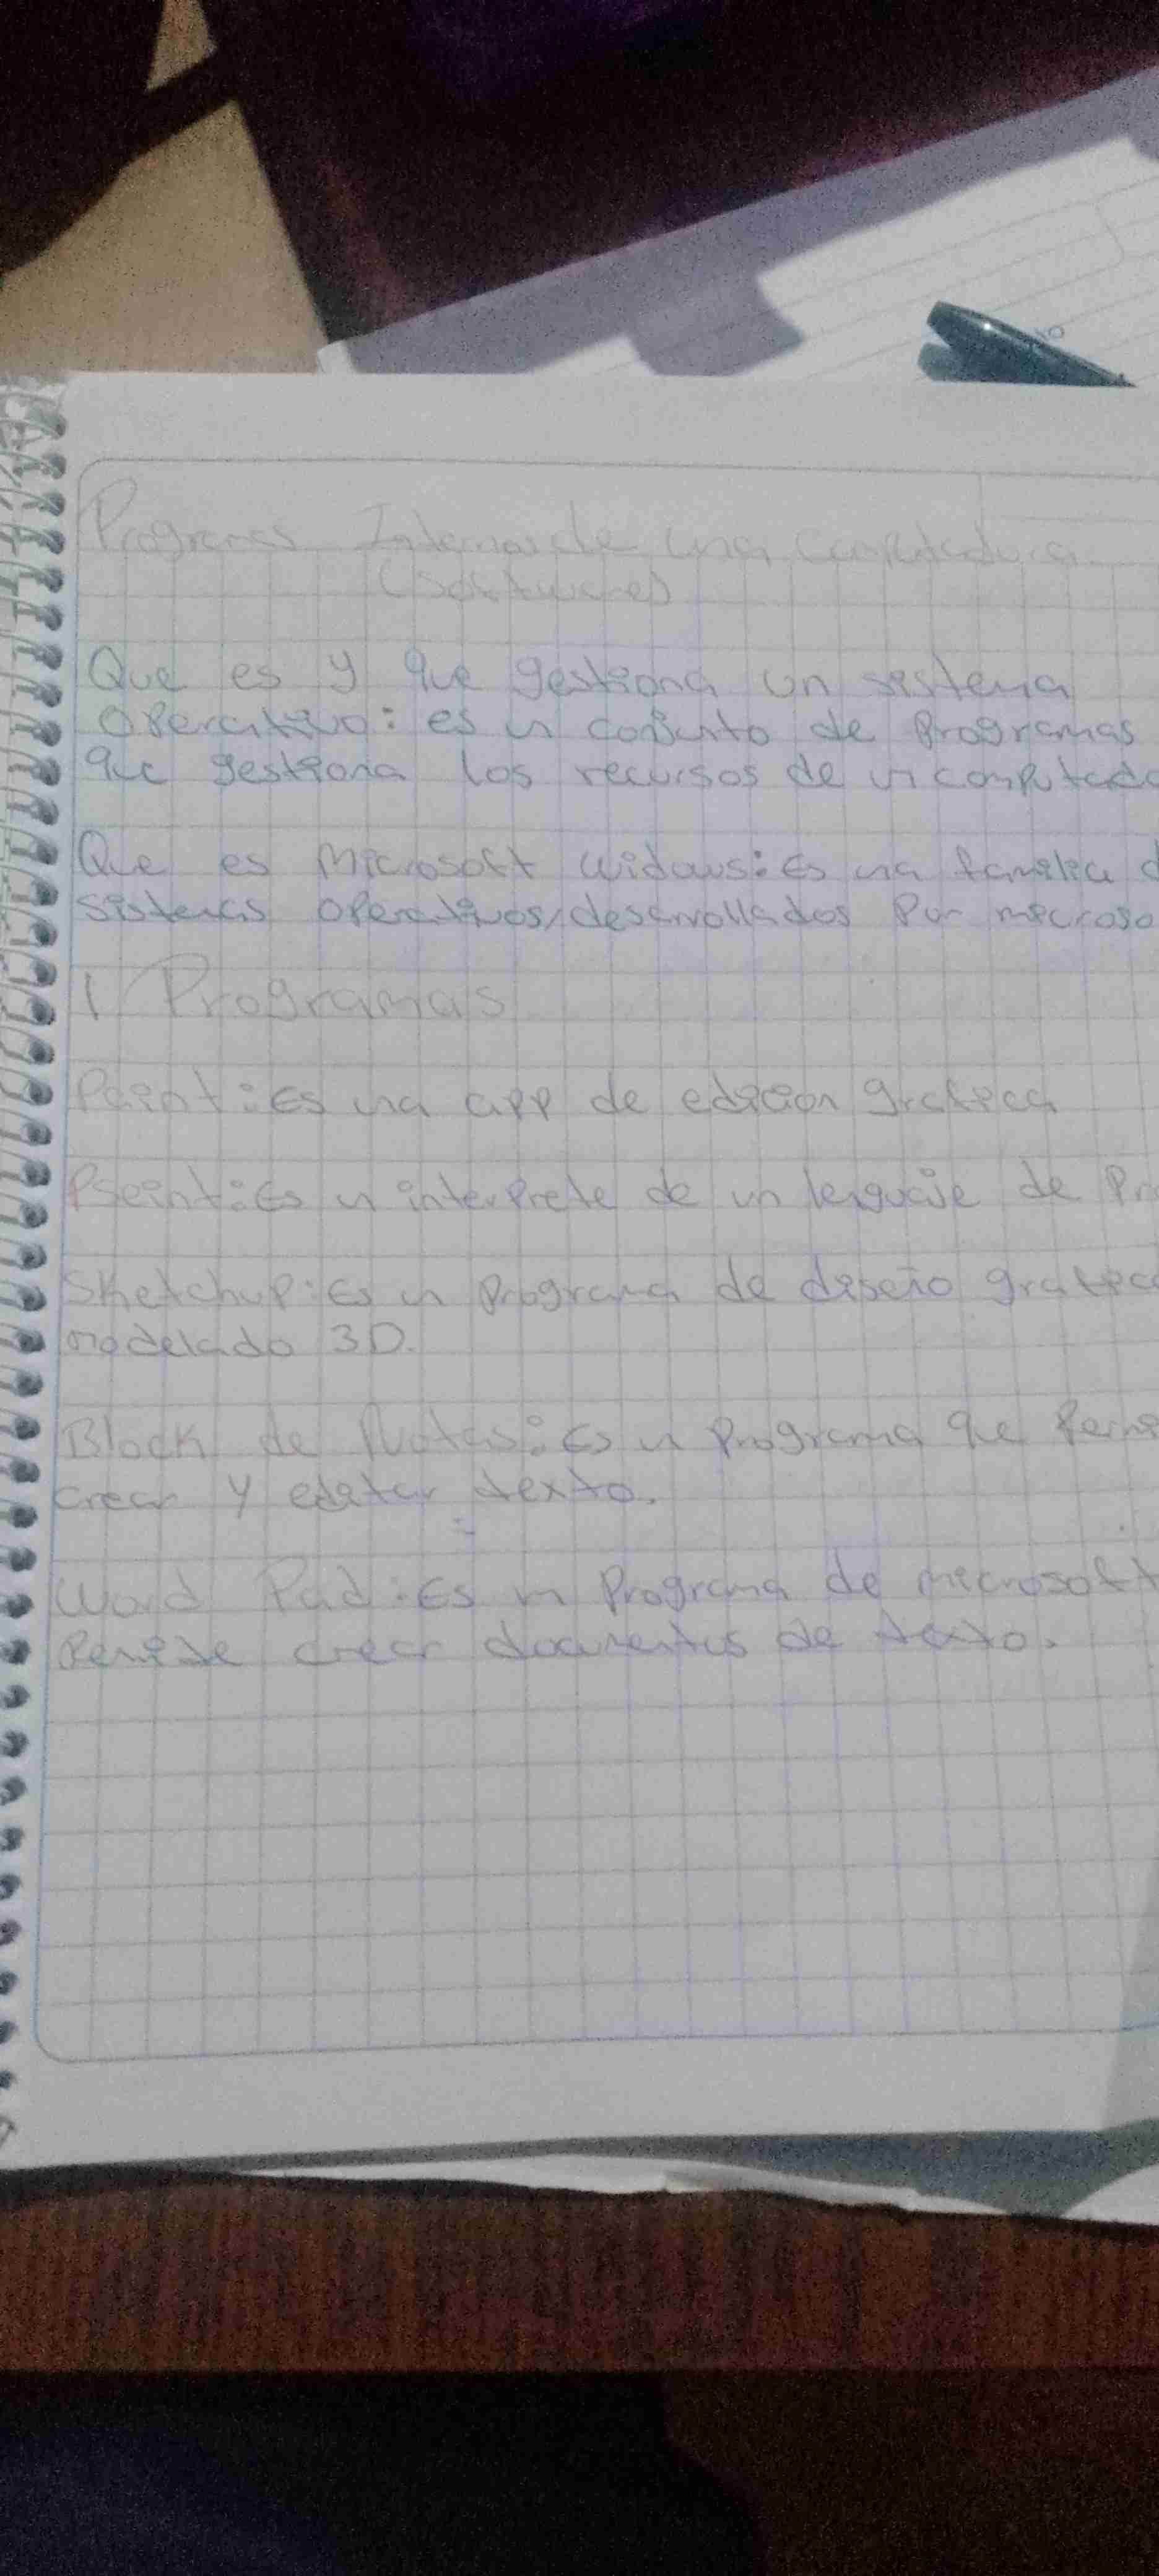 Programas Internos de una computadora
(Software)
Que es y que gestiona un sistema
operativo: es un conjunto de programas
que gestiona los recursos de un computado
Que es Microsoft widows: Es una familia d
sistemas operativos, desarrollados por microso
1 Programas
Paint: Es una app de edicion grafica
Pseint: Es un interprete de un lenguaje de Pro
Sketchup: Es un programa de diseño grafico
modelado 3D.
Block de Notas: Es un programa que Permi
crear y editar texto.
Word Pad: Es un Programa de microsoft
Permite crear documentos de texto.